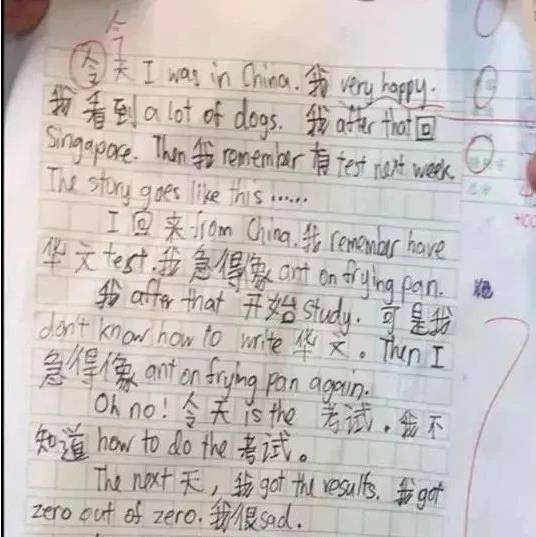 今
今天 I was in China. 我 very happy.
我看到 a lot of dogs. 我 after that 回
Singapore. Then 我 remember 有 test next week.
The story goes like this ......
I 回来 from China. 我 remember have
华文 test. 我急得像 ant on frying pan.
我 after that 开始 study. 可是我
don't know how to write 华文。Then I
急得像 ant on frying pan again.
Oh no! 今天 is the 考试. 我不
知道 how to do the 考试。
The next 天, 我 got the results. 我 got
zero out of zero. 我很 sad.